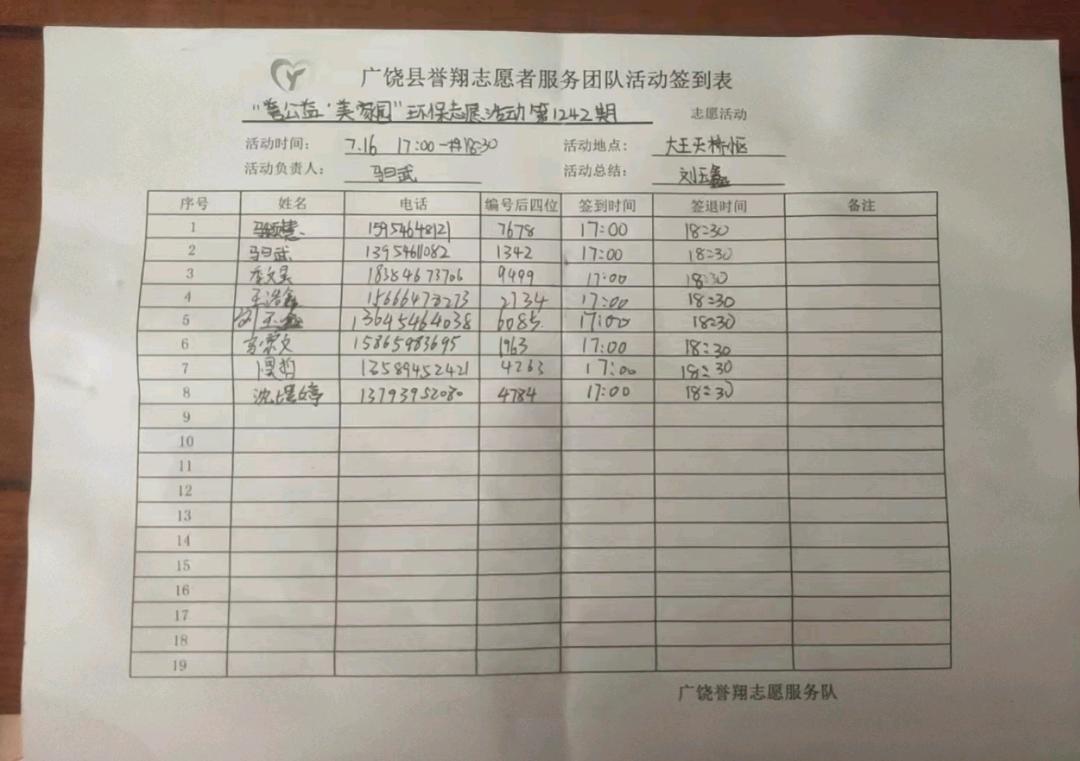 广饶县誉翔志愿者服务团队活动签到表
公益·美家园"环保志愿活动第1242期 志愿活动
活动时间: 7.16 17:00-18:30 活动地点: 大王天桥
活动负责人: 马日武 活动总结: 刘玉鑫
序号 姓名 电话 编号后四位 签到时间 签退时间 备注
1 15954648121 7678 17:00 18:30
2 马日武 13954611082 1342 17:00 18:30
3 18384673706 9499 17:00 18:30
4 2734 17:00 18:30
5 刘玉鑫 13645464038 6085 17:00 18:30
6 15865983695 1963 17:00 18:30
7 13589452421 4263 17:00 18:30
8 13793952080 4784 17:00 18:30
9
10
11
12
13
14
15
16
17
18
19
广饶誉翔志愿服务队